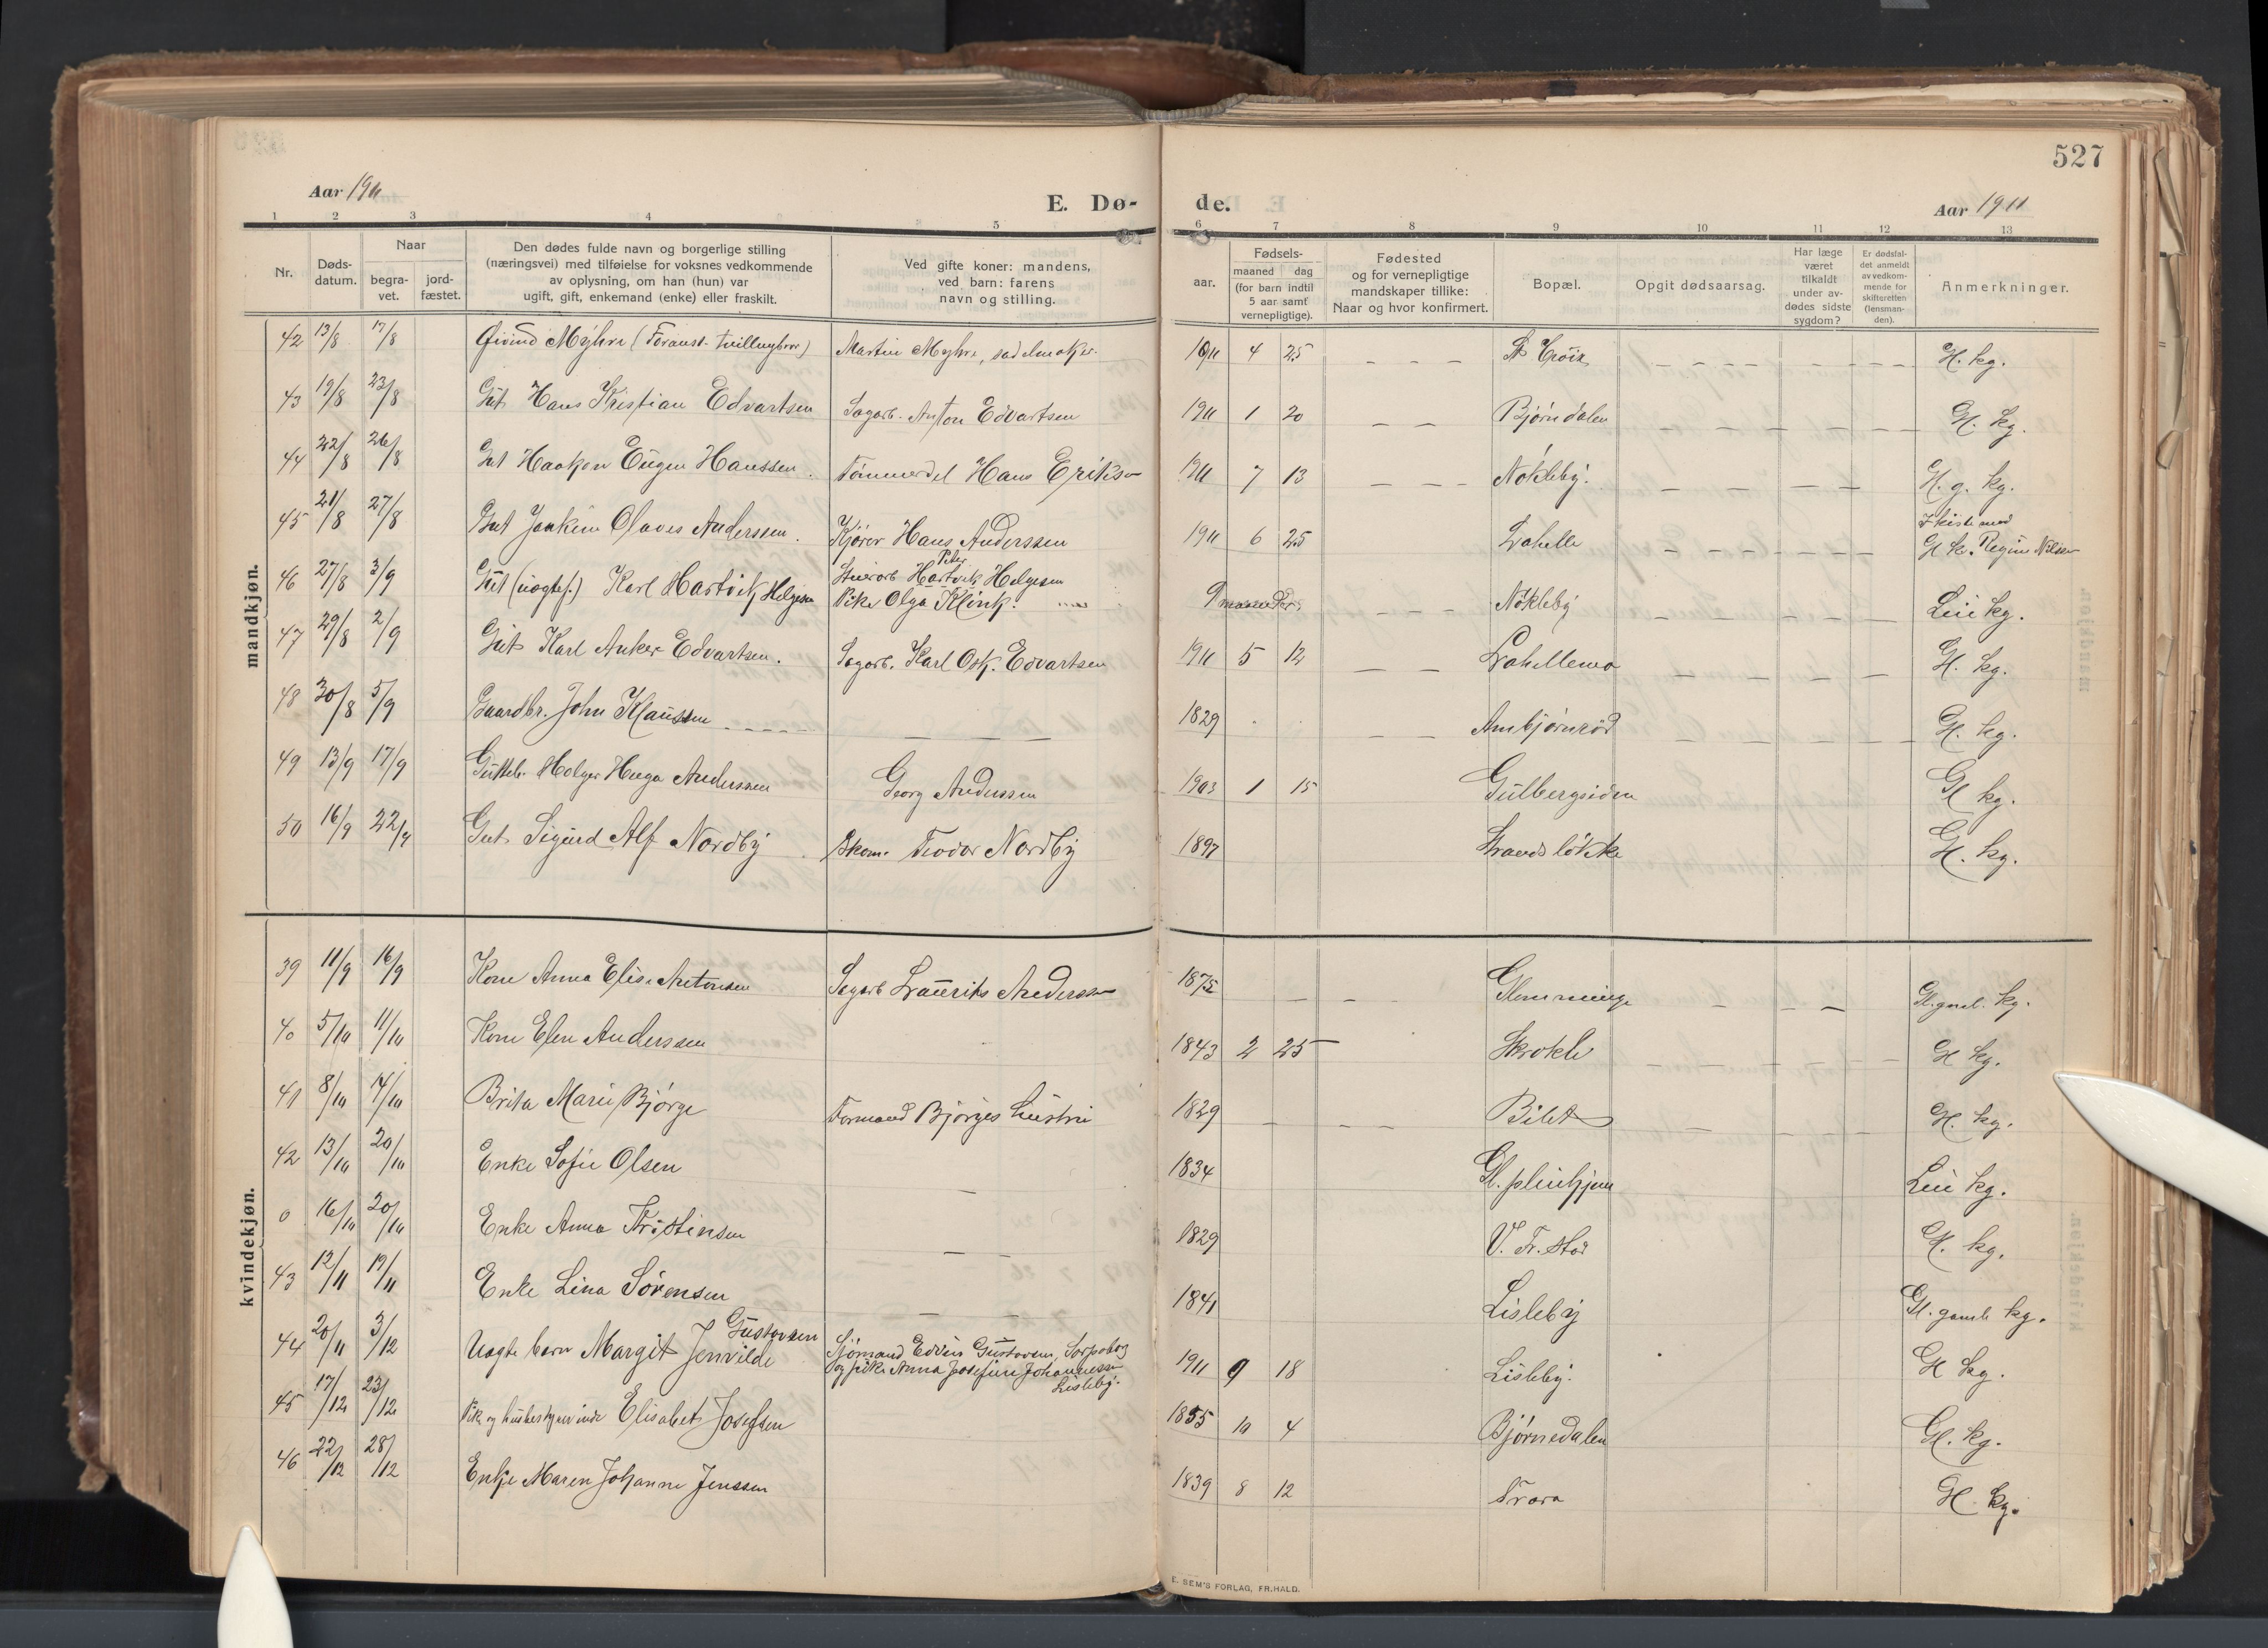 527
Aar 1911
E. Dø-
de.
Aar 1911
1 2 3 4 5 6 7 8 9 10 11 12 13
Nr.
Døds-
datum.
Naar
begra-
vet.
jord-
fæstet.
Den dødes fulde navn og borgerlige stilling
(næringsvei) med tilføielse for voksnes vedkommende
av oplysning, om han (hun) var
ugift, gift, enkemand (enke) eller fraskilt.
Ved gifte koner: mandens,
ved barn: farens
navn og stilling.
Fødsels-
aar.
maaned dag
(for barn indtil
5 aar samt
vernepligtige).
Fødested
og for vernepligtige
mandskaper tillike:
Naar og hvor konfirmert.
Bopæl.
Opgit dødsaarsag.
Har læge
været
tilkaldt
under av-
dødes sidste
sygdom?
Er dødsfal-
det anmeldt
av vedkom-
mende for
skifteretten
(lensman-
den).
Anmerkninger.
mandkjøn.
42 13/8 17/8 Øivind Myhre (Foranst. tvillingbror) Martin Myhre, sadelmaker. 1911 4 25 St Croix Gl. kg.
43 19/8 23/8 Gut Hans Kristian Edvartsen Sagarb. Anton Edvartsen 1911 1 20 Bjørndalen Gl. kg.
44 22/8 26/8 Gut Haakon Eugen Hanssen. Tømmerdel Hans Eriksen 1911 7 13 Nøkleby. Gl. g. kg.
45 21/8 27/8 Gut Joakim Olaves Anderssen. Kjører Hans Anderssen 1911 6 25 Lahelle I kiste med
Gl k. Regine Nilsen
46 27/8 3/9 Gut (uegtef.) Karl Hartvik Helgesen Peter
Hartvik Helgesen
Pike Olga Klink. 9 maaneder Nøkleby Leie kg.
47 29/8 2/9 Gut Karl Anker Edvartsen. Sagarb. Karl Osk. Edvartsen 1911 5 12 Lahellemo Gl. kg.
48 30/8 5/9 Gaardbr. John Klaussen 1829 Ambjørnrød Gl. kg.
49 13/9 17/9 Gutteb. Holger Hugo Anderssen Georg Anderssen 1903 1 15 Gulbergsiden Gl kg.
50 16/9 22/9 Gut Sigurd Alf Nordby Skom. Teodor Nordby 1897 Strandsløkke Gl. kg.
kvindekjøn.
39 11/9 16/9 Kone Anna Elise Antonsen Sagarb Laurits Anderssen 1875 Glemminge Gl. gaml. kg.
40 5/10 11/10 Kone Elen Anderssen 1843 2 25 Skrokle Gl kg.
41 8/10 14/10 Brita Marie Bjørge Formand Bjørges hustru 1829 Bilet Gl. kg.
42 13/10 20/10 Enke Sofie Olsen 1834 Gl. pleiehjem Leie kg.
0 16/10 20/10 Enke Anna Kristinsen 1829 V. Fr. stad Gl. kg.
43 12/11 19/11 Enke Lina Sørensen 1841 Lisleby Gl. gamle kg.
44 20/11 3/12 Uegte barn Margit Jenvilde Gustavsen Sjømand Edvin Gustavsen, Sarpsborg
og pike Anna Josefine Johannessen
Lisleby. 1911 9 18 Lisleby. Gl kg.
45 17/12 23/12 Pike og husbestyrerinde Elisabet Josefsen 1855 10 4 Bjørnedalen Gl. kg.
46 22/12 28/12 Enke Maren Johanne Jenssen 1839 8 12 Trara Gl. kg.
E. SEM'S FORLAG, FR.HALD.